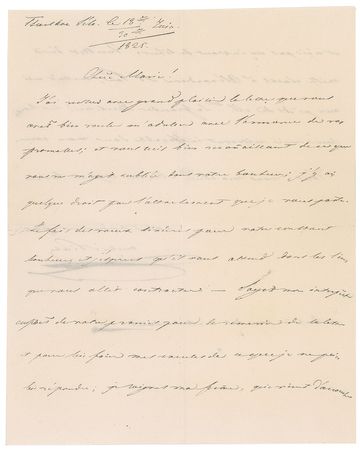 le 18 Juin
30
1828.
Chère Marie!
J'ai reçu avec grand plaisir la lettre que vous
avez bien voulu m'adresser avec l'annonce de vos
promesses, et vous suis bien reconnaissant de ce que
vous ne m'ayez oublié dans votre bonheur; j'y ai
quelque droit par l'attachement que je vous porte.
Je fais des vœux sincères pour votre constant
bonheur et espère qu'il vous attend dans les liens
que vous allez contracter — Soyez mon interprète
auprès de votre promis pour le remercier de sa lettre
et pour lui faire mes excuses de ce que je ne puis
lui répondre; je soigne ma femme, qui vient